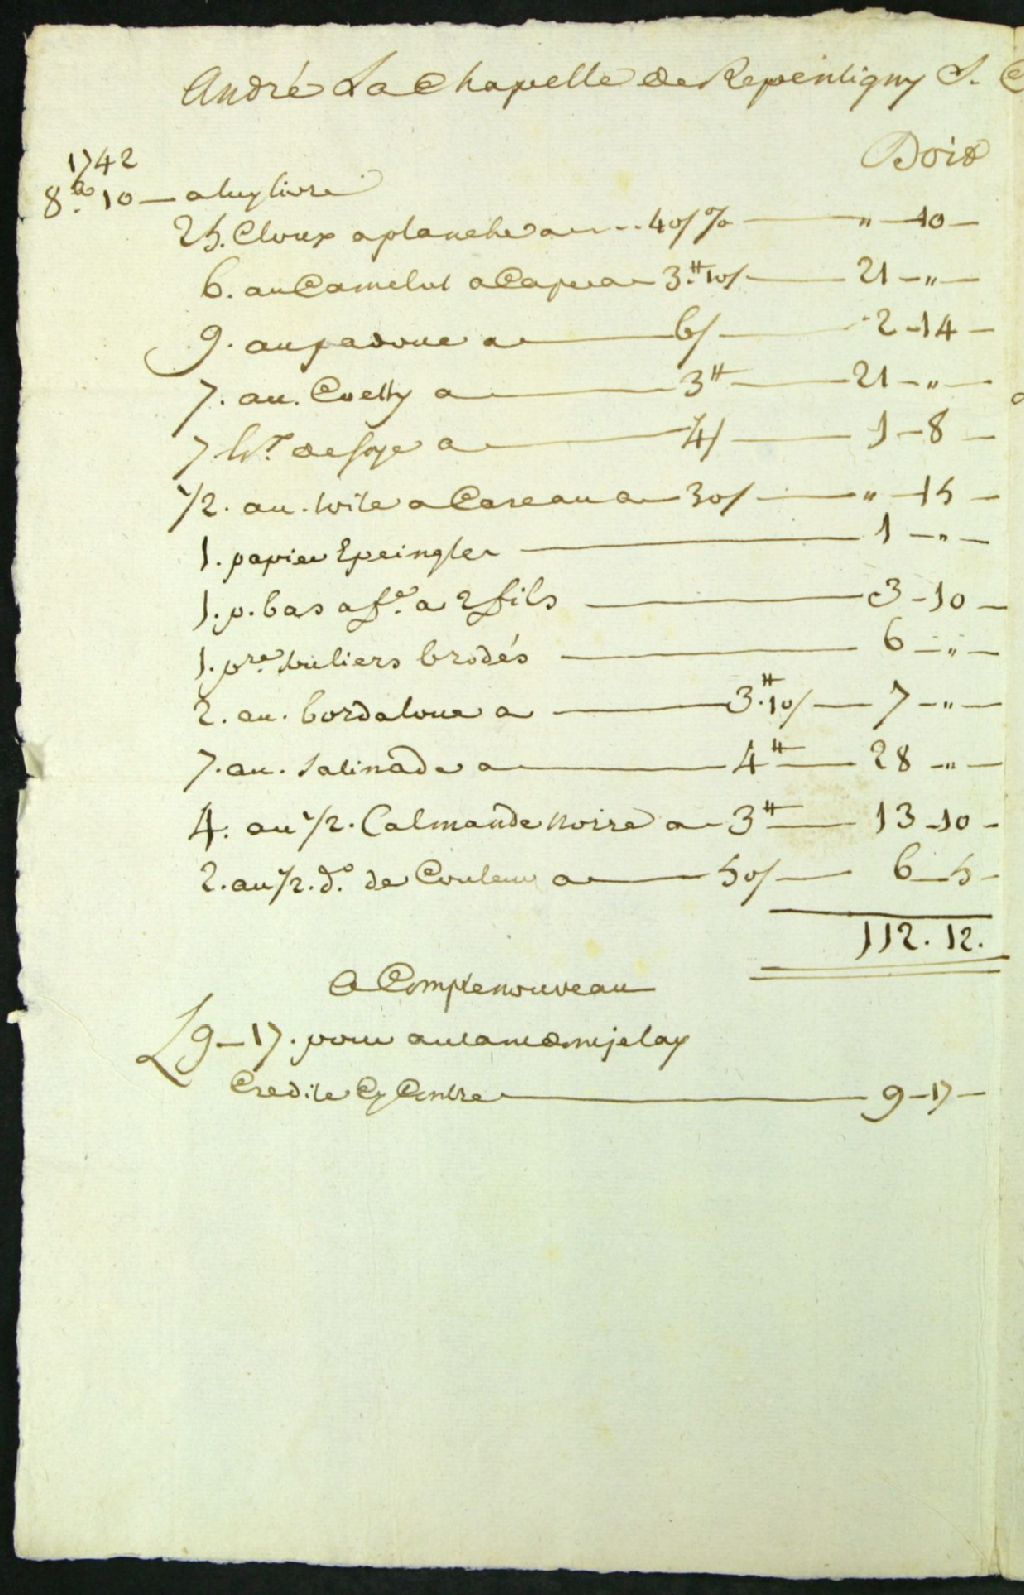 André La Chapelle de Repentigny S. C
Doit
1742
8.bre 10 — a luy livré
25. Cloux a planche a — 40/ % — " — 10 —
6. au Camelot a Cape a — 3.⧺10/ — 21 — " —
9. au padoue a — 6/ — 2 — 14 —
7. au. Cuetty a — 3⧺ — 21 — " —
7 de soye a — 4/ — 1 — 8 —
1/2. au. toile a Careau a — 30/ — " — 15 —
1. papier Epeingles — 1 — " —
1. p. bas a fe. a 2 fils — 3 — 10 —
1. pre. souliers brodés — 6 — " —
2. au. bordaloue a — 3.⧺10/ — 7 — " —
7. au. Satinade a — 4⧺ — 28 — " —
4. au 1/2. Calmande noire a — 3⧺ — 13 — 10 —
2. au 1/2. do. de Couleur a — 50/ — 6 — 5 —
112. 12.
a Compte nouveau
L 9 — 17. pour autant dont je lay
Credite Cy Contre — 9 — 17 —